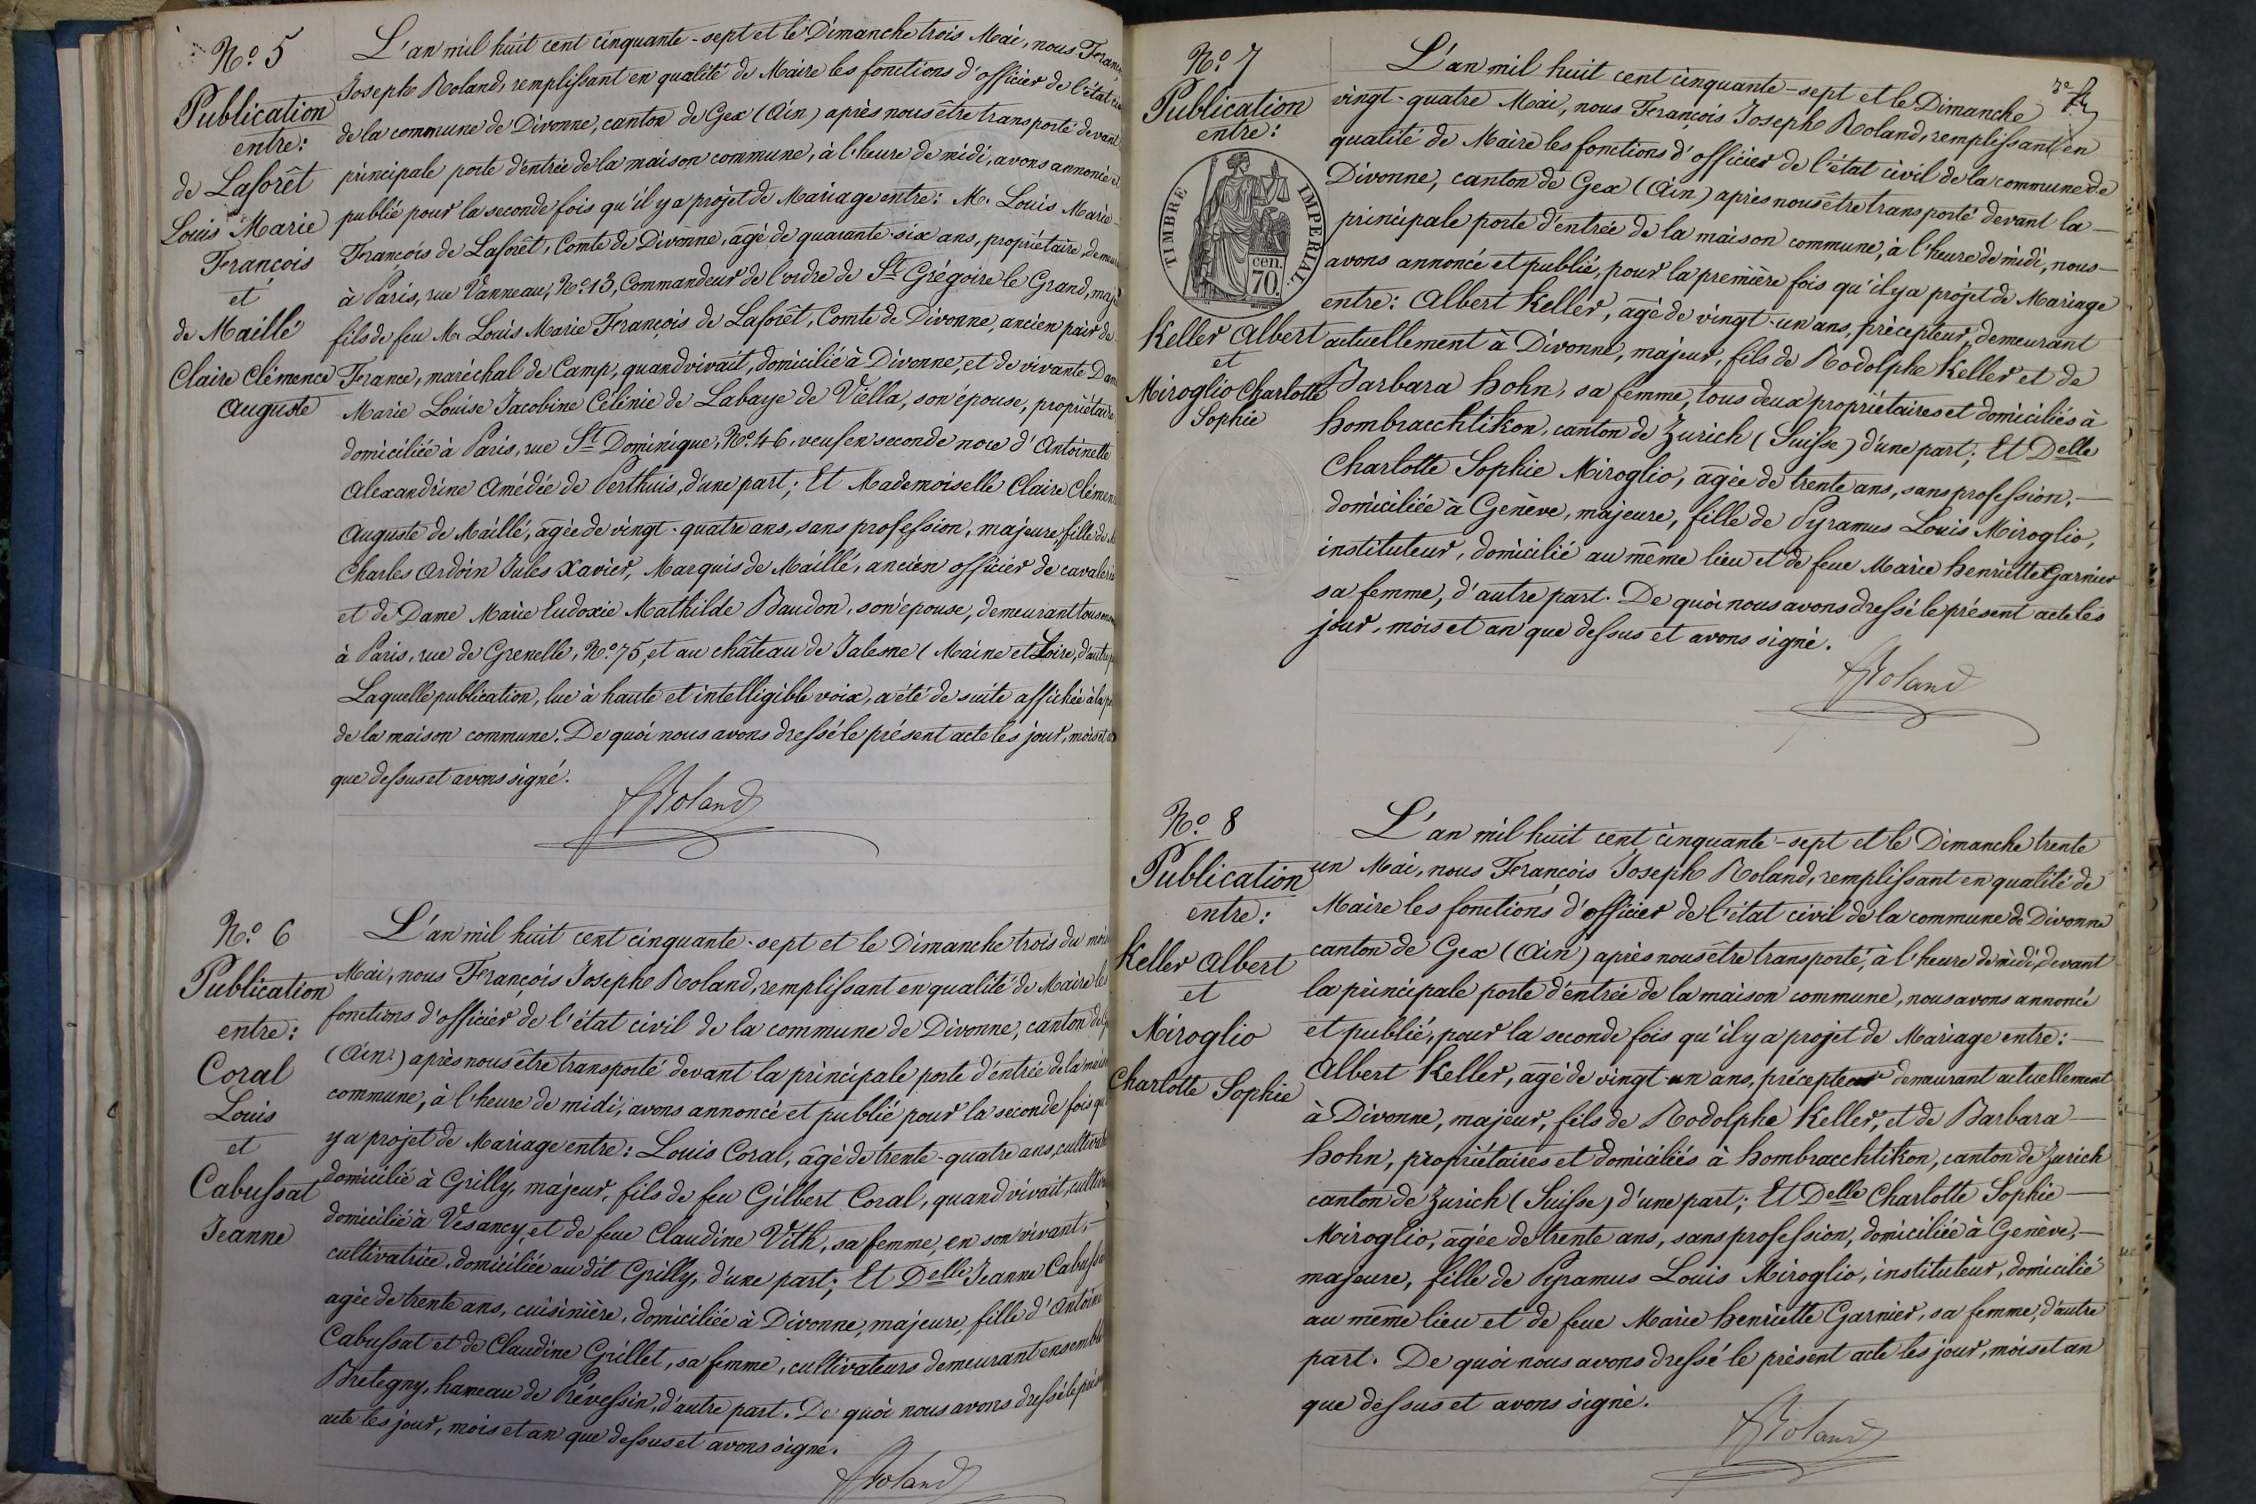 N.º 5
Publication
entre:
de Laforêt
Louis Marie
François
et
de Maillé
Claire Clémence
Auguste
L'an mil huit cent cinquante-sept et le Dimanche trois Mai, nous Franç
Joseph Roland, remplissant en qualité de Maire les fonctions d'officier de l'état
de la commune de Divonne, canton de Gex (Ain) après nous être transporté devant
principale porte d'entrée de la maison commune, à l'heure de midi, avons annoncé
publié pour la seconde fois qu'il y a projet de Mariage entre: M. Louis Marie
François de Laforêt, Comte de Divonne, agé de quarante-six ans, propriétaire, demeu
à Paris, rue Vanneau, N.º 13, Commandeur de l'ordre de St Grégoire le Grand, maj
fils de feu M. Louis Marie François de Laforêt, Comte de Divonne, ancien pair de
France, maréchal de Camp, quand vivait, domicilié à Divonne, et de vivante Dam
Marie Louise Jacobine Célénie de Labaye de Viella, son épouse, propriétaire
domiciliée à Paris, rue St Dominique, N.º 46, veuf en seconde noce d'Antoinette
Alexandrine Amédée de Perthuis, d'une part; Et Mademoiselle Claire Clémen
Auguste de Maillé, agée de vingt-quatre ans, sans profession, majeure, fille de
Charles Ardoin Jules Xavier, Marquis de Maillé, ancien officier de cavalerie
et de Dame Marie Eudoxie Mathilde Baudon, son épouse, demeurant tous
à Paris, rue de Grenelle, N.º 75, et au château de Jalesne (Maine et Loire, d'autre
Laquelle publication, lue à haute et intelligible voix, a été de suite affichée à la
de la maison commune. De quoi nous avons dressé le présent acte les jour, mois et
que dessus et avons signé.
FRoland
N.º 6
Publication
entre:
Coral
Louis
et
Cabussat
Jeanne
L'an mil huit cent cinquante-sept et le Dimanche trois du mois
Mai, nous François Joseph Roland, remplissant en qualité de Maire les
fonctions d'officier de l'état civil de la commune de Divonne, canton de
(Ain) après nous être transporté devant la principale porte d'entrée de la mais
commune, à l'heure de midi, avons annoncé et publié pour la seconde fois qu
y a projet de Mariage entre: Louis Coral, agé de trente-quatre ans, cultivat
domicilié à Grilly, majeur, fils de feu Gilbert Coral, quand vivait, cultiv
domicilié à Vesancy, et de feue Claudine Vith, sa femme, en son vivant,
cultivatrice, domiciliée au dit Grilly, d'une part; Et Delle Jeanne Cabussat
agée de trente ans, cuisinière, domiciliée à Divonne, majeure, fille d'Antoine
Cabussat et de Claudine Grillet, sa femme, cultivateurs demeurant ensemble
Bretegny, hameau de Prévessin, d'autre part. De quoi nous avons dressé le prés
acte les jour, mois et an que dessus et avons signé.
FRoland
N.º 7
Publication
entre:
TIMBRE IMPERIAL
cen.
70.
Keller Albert
et
Miroglio Charlotte
Sophie
L'an mil huit cent cinquante-sept et le Dimanche
vingt-quatre Mai, nous François Joseph Roland, remplissant en
qualité de Maire les fonctions d'officier de l'état civil de la commune de
Divonne, canton de Gex (Ain) après nous être transporté devant la
principale porte d'entrée de la maison commune, à l'heure de midi, nous
avons annoncé et publié, pour la première fois qu'il y a projet de Mariage
entre: Albert Keller, agé de vingt-un ans, précepteur, demeurant
actuellement à Divonne, majeur, fils de Rodolphe Keller et de
Barbara hohn, sa femme, tous deux propriétaires et domiciliés à
hombracchtikon, canton de Zurich (Suisse) d'une part; Et Delle
Charlotte Sophie Miroglio, agée de trente ans, sans profession,
domiciliée à Genève, majeure, fille de Pyramus Louis Miroglio,
instituteur, domicilié au même lieu et de feue Marie henriette Garnier
sa femme, d'autre part. De quoi nous avons dressé le présent acte les
jour, mois et an que dessus et avons signé.
FRoland
N.º 8
Publication
entre:
Keller Albert
et
Miroglio
Charlotte Sophie
L'an mil huit cent cinquante-sept et le Dimanche trente
un Mai, nous François Joseph Roland, remplissant en qualité de
Maire les fonctions d'officier de l'état civil de la commune de Divonne
canton de Gex (Ain) après nous être transporté, à l'heure de midi, devant
la principale porte d'entrée de la maison commune, nous avons annoncé
et publié, pour la seconde fois qu'il y a projet de Mariage entre:
Albert Keller, agé de vingt-un ans, précepteur demeurant actuellement
à Divonne, majeur, fils de Rodolphe Keller, et de Barbara
hohn, propriétaires et domiciliés à hombracchtikon, canton de Zurich
canton de Zurich (Suisse) d'une part; Et Delle Charlotte Sophie
Miroglio, agée de trente ans, sans profession, domiciliée à Genève,
majeure, fille de Pyramus Louis Miroglio, instituteur, domicilié
au même lieu et de feue Marie henriette Garnier, sa femme, d'autre
part. De quoi nous avons dressé le présent acte les jour, mois et an
que dessus et avons signé.
FRoland